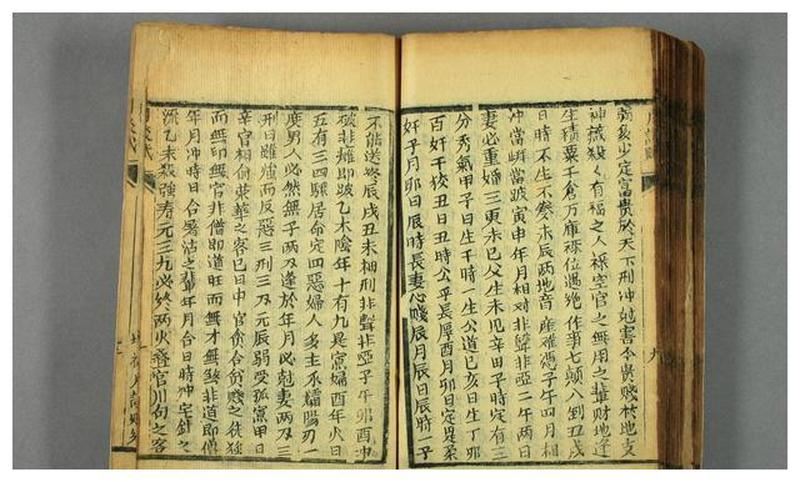 禍友少定富貴於天下刑冲尅害令貴賤於地支
神識殺人有福之人祿空官之無用之輩財地逢
生積粟千倉万庫祿位遇絶作事七顛八到丑戌
日時不生不發未辰两地音难憑子午四月相
冲當嶙當跛寅申年月相对非聾非啞二午两日
妻必重婚三更未巳父生未见辛田子時定有三
分秀氣甲子日生干時一生公道巳亥日生丁卯
百奸千狡丑日丑時公平長厚酉月卯日定是柔
奸子月卯日辰時長妻心賤辰月辰日辰時一子
不能送終辰戌丑未相刑非聾非啞子午卯酉冲
破非㾑即跛乙木陰年十有九是寡婦酉年火日
五有三四驟居命定四惡婦人多主承孀陽刃一
度男人必然無子两刃逢於年月必尅妻两刃三
刑日雖強而反惡三刑三刃元辰弱受孤寡甲日
辛官相侖榮華之客巳日中官貪合貧賤之徒独
而無印無官非僧即道旺而無才無煞非道即僧
年月冲時日合屠沽之輩年月合日時冲宅針之
流乙未殺強寿元三九必終两火叠官川句之客